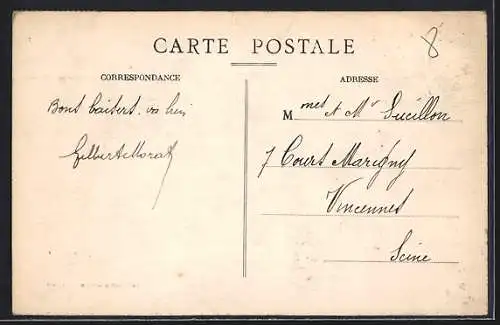 CARTE POSTALE
8
CORRESPONDANCE
Bons baisers.
Gilbert Morat
ADRESSE
Mmes & Mr Lucillon
7 Cours Marigny
Vincennes
Seine